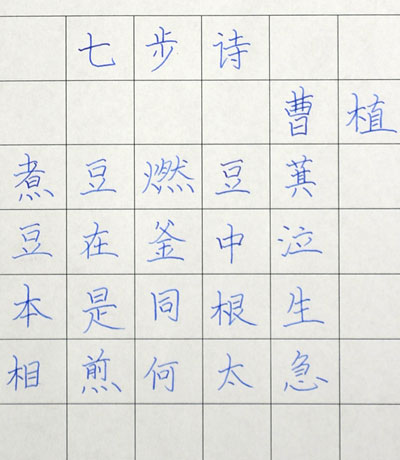 七步诗
曹植
煮豆燃豆萁
豆在釜中泣
本是同根生
相煎何太急